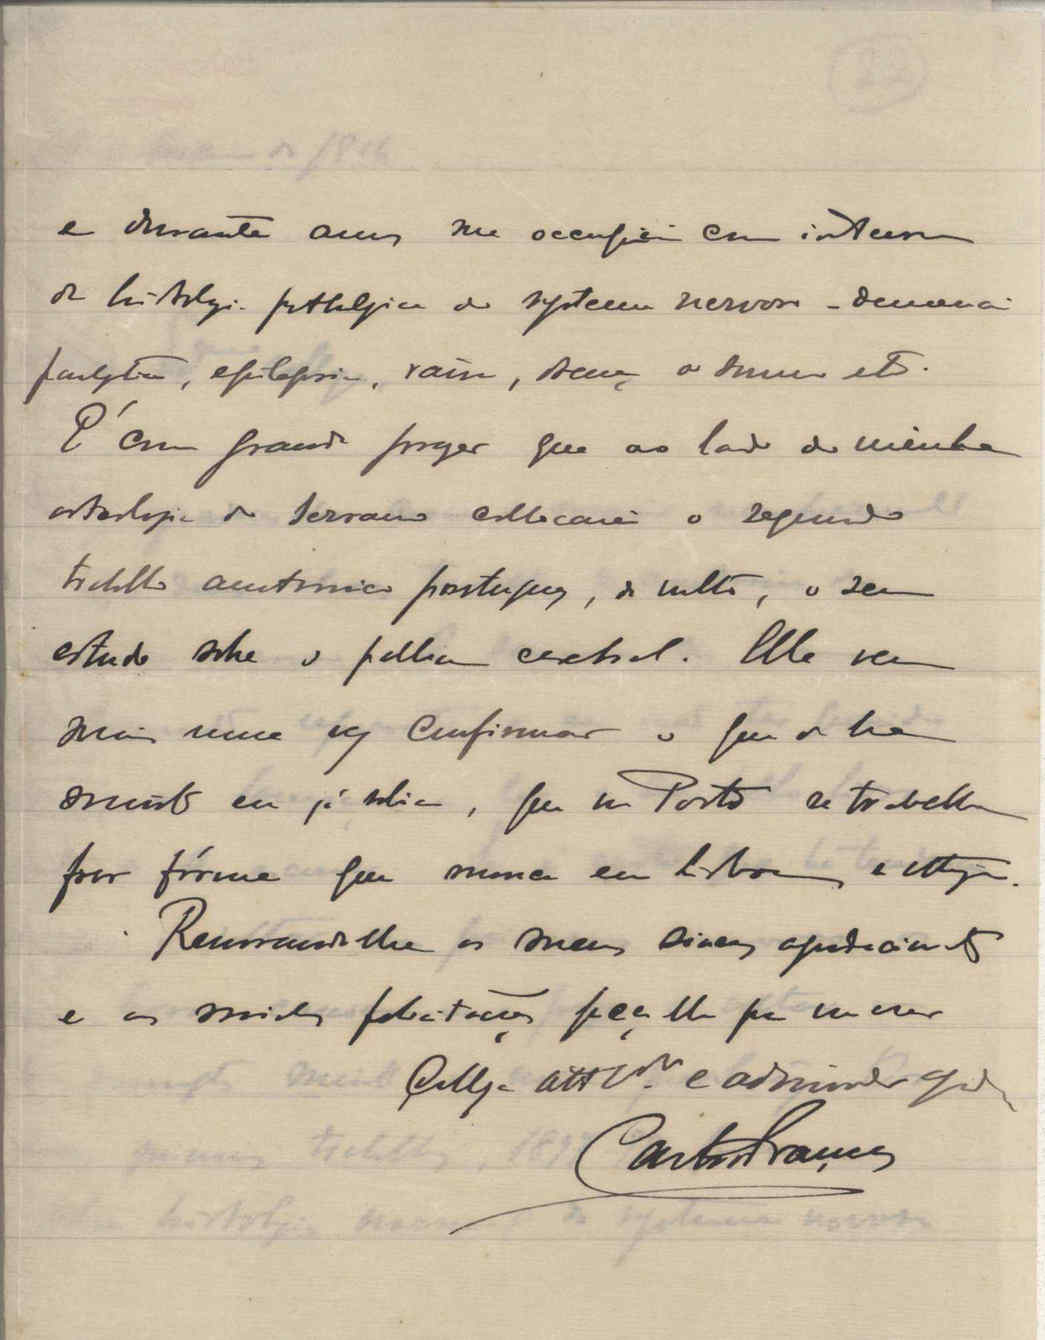 e durante annos me occupei com interesse
da histologia pathologica do systema nervoso - demencia
paralytica, epilepsia, raiva, doença do somno etc.
É com grande prazer que ao lado da minha
osteologia do Serrano collocarei o segundo
trabalho anatomico portuguez, de vulto, o seu
estudo sobre o pallium cerebral. Elle vem
mais uma vez confirmar o que de ha
muito eu já sabia, que no Porto se trabalha
por fórma que nunca em Lisboa se attinge.
Renovando-lhe os meus agradecimentos
e as minhas felicitações peço-lhe para me crer
Collega attº Vor. e admirador
Carlos França